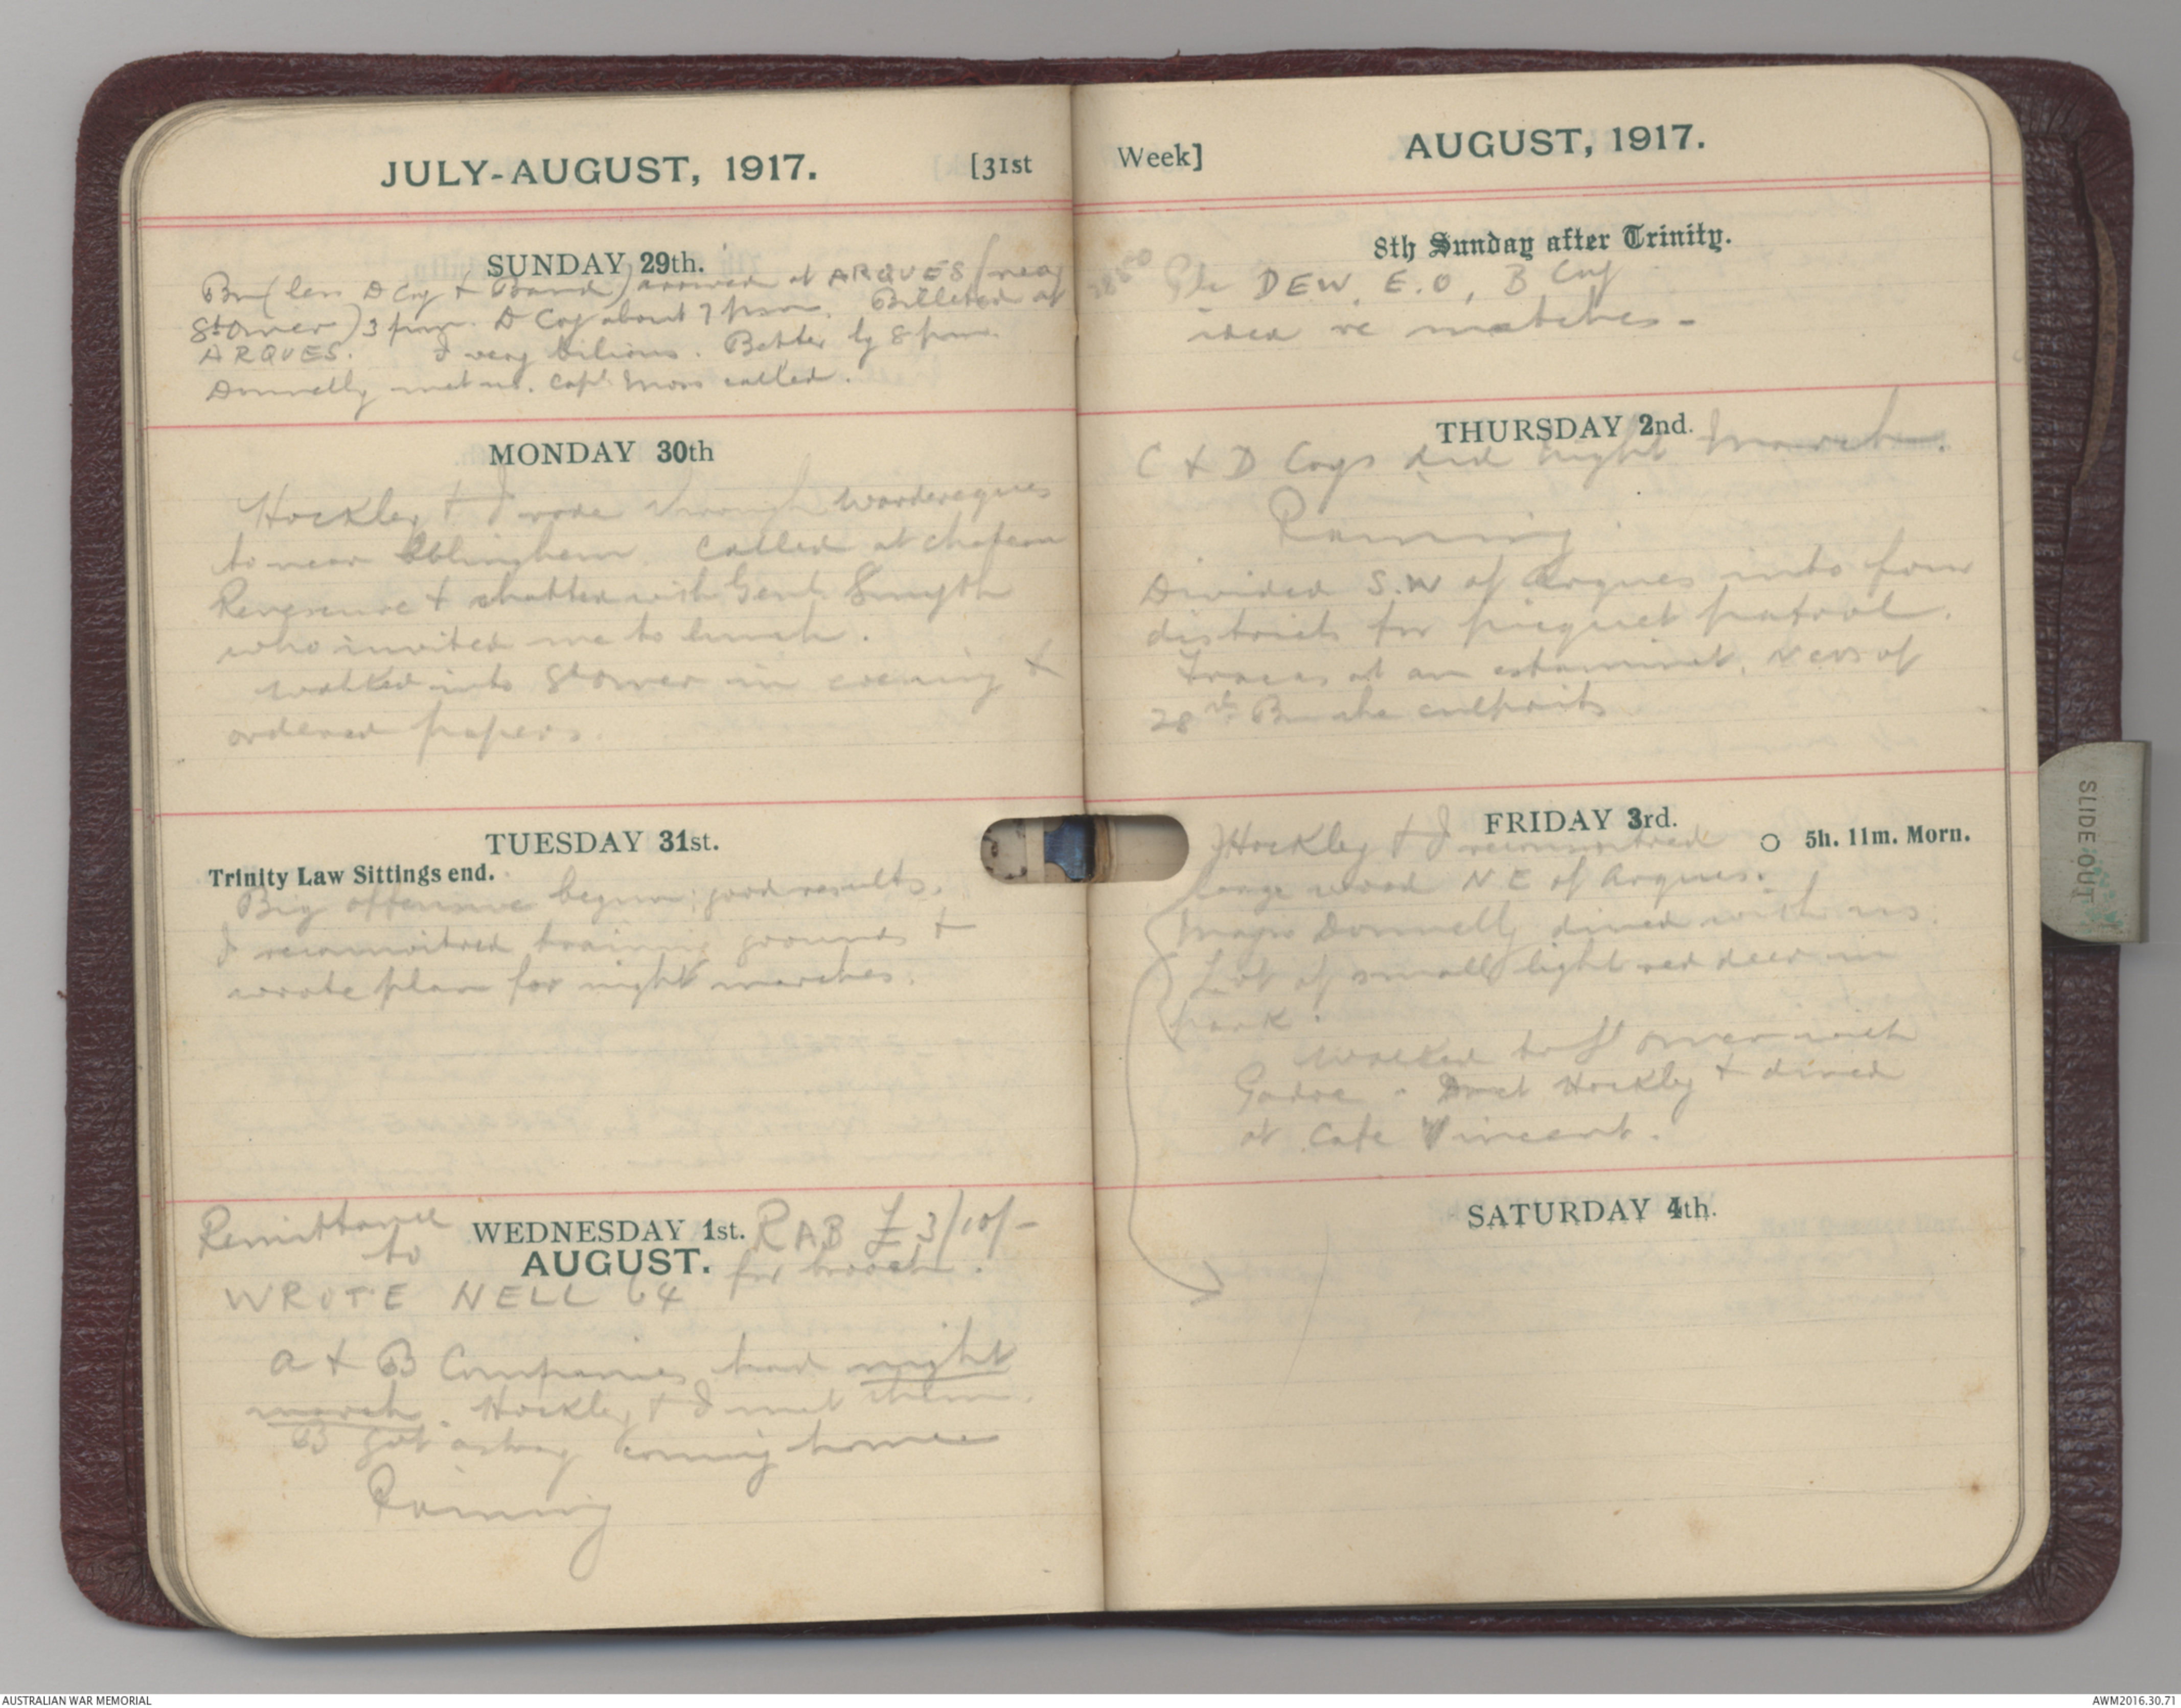 JULY-AUGUST, 1917. [31st
SUNDAY 29th.
Bn (less D Coy & Band) arrived at ARQUES (near
St Omer) 3 pm. D Coy about 7 pm. Billeted at
ARQUES. I very bilious. Better by 8 pm.
Donnelly met us. Capt. Moss called.
MONDAY 30th
Hockley & I rode through Wardrecques
to near Ebblinghem. Called at chateau
Renescure & chatted with Genl. Smyth
who invited me to lunch.
Walked into St Omer in evening &
ordered papers.
TUESDAY 31st.
Trinity Law Sittings end.
Big offensive begun; good results.
I reconnoitred training grounds &
wrote plan for night marches.
Remittance
to
WEDNESDAY 1st.
AUGUST.
RAB £3/10/-
for brooch.
WROTE NELL 64
A & B Companies had night
march. Hockley & I met them.
B got astray coming home
Raining
Week] AUGUST, 1917.
8th Sunday after Trinity.
Pte DEW, E.O, B Coy
idea re matches -
THURSDAY 2nd.
C & D Coys did night march.
Raining.
Divided S.W of Arques into four
districts for picquet patrol.
Fracas at an estaminet. of
28th Bn the culprits
FRIDAY 3rd.
5h. 11m. Morn.
Hockley & I reconnoitred
large wood N.E of Arques.
Major Donnelly dined with us.
Lot of small light red deer in
park.
Walked to St Omer with
Met Hockley & dined
at Cafe Vincent.
SATURDAY 4th.
SLIDE OUT
AUSTRALIAN WAR MEMORIAL
AWM2016.30.71